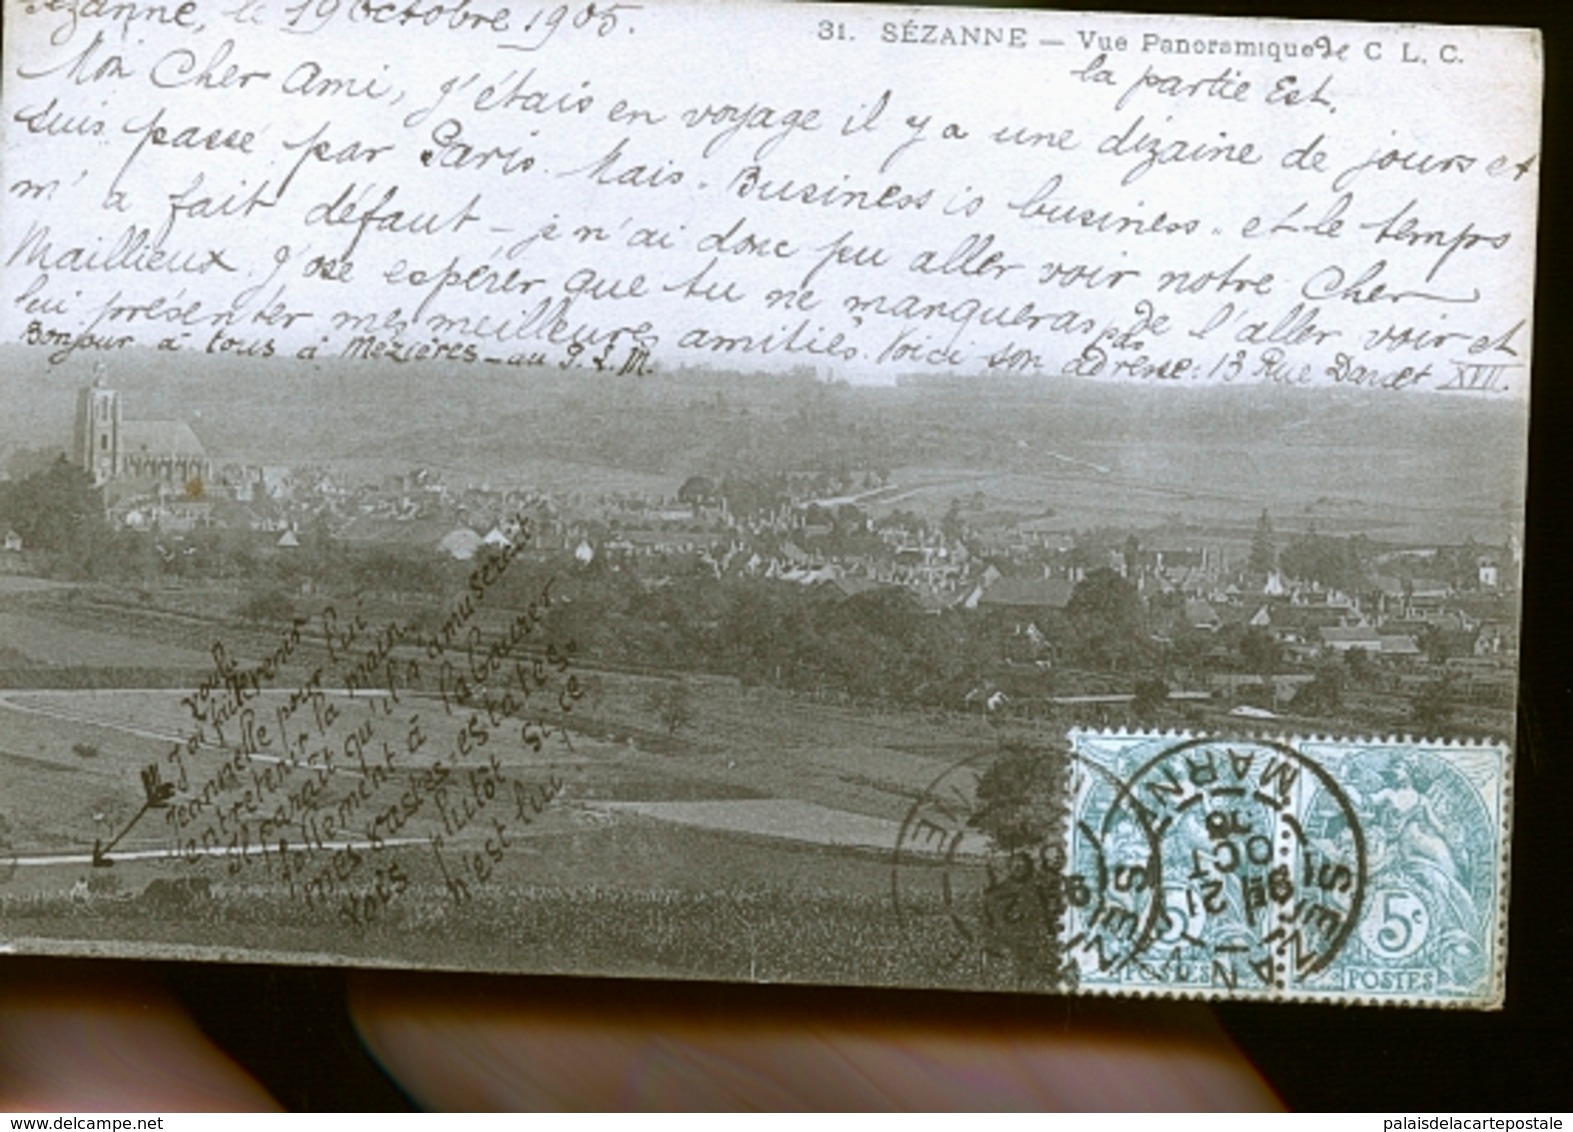 Sézanne, le 19 octobre 1905.
31. SÉZANNE — Vue Panoramique de C L. C.
la partie Est.
Mon Cher Ami, j'étais en voyage il y a une dizaine de jours et
suis passé par Paris. Mais. Business is business. et le temps
m'a fait défaut - je n'ai donc pu aller voir notre Cher
Maillieux. J'ose espérer que tu ne manqueras pas de l'aller voir et
lui présenter mes meilleures amitiés. Voici son adresse: 13 Rue Darcet XVII.
Bonjour à tous à Mézières - au P. L. M.
voulu
J'ou
Jeannelle pour lui
entretenir la main.
Il parait qu'il a
tellement à labourer
mes
vois plutôt si ce
n'est lui
MARNE
SEZANNE
1E
21
OCT
05
5c
POSTES
5c
POSTES
palaisdelacartepostale